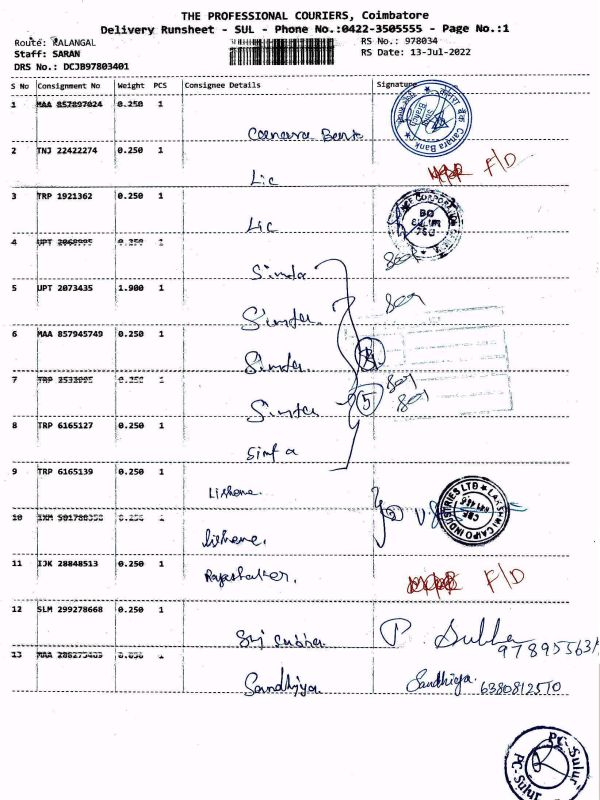 THE PROFESSIONAL COURIERS, Coimbatore
Delivery Runsheet - SUL - Phone No.:0422-3505555 - Page No.:1
Route: KALANGAL
RS No.: 978034
Staff: SARAN
RS Date: 13-Jul-2022
DRS No.: DCJB97803401
S No Consignment No Weight PCS Consignee Details Signature
1 MAA 857897024 0.250 1
Canara Bank
Canara Bank
2 TNJ 22422274 0.250 1
Lic F/D
3 TRP 1921362 0.250 1
Lic
4 UPT 0.250 1
Simta
5 UPT 2073435 1.900 1
Simta
6 MAA 857945749 0.250 1
Simta
7 TRP 0.250 1
Simta 5
8 TRP 6165127 0.250 1
Simta
9 TRP 6165139 0.250 1
LAKSHMI CAIPO INDUSTRIES LTD
10 0.250 1
11 IJK 28848513 0.250 1
Rajashaker. F/D
12 SLM 299278668 0.250 1
Sri Subha P. Subha
13 MAA 1
Sandhiya Sandhiya 6380812510
PC-Sulur
PC-Sulur